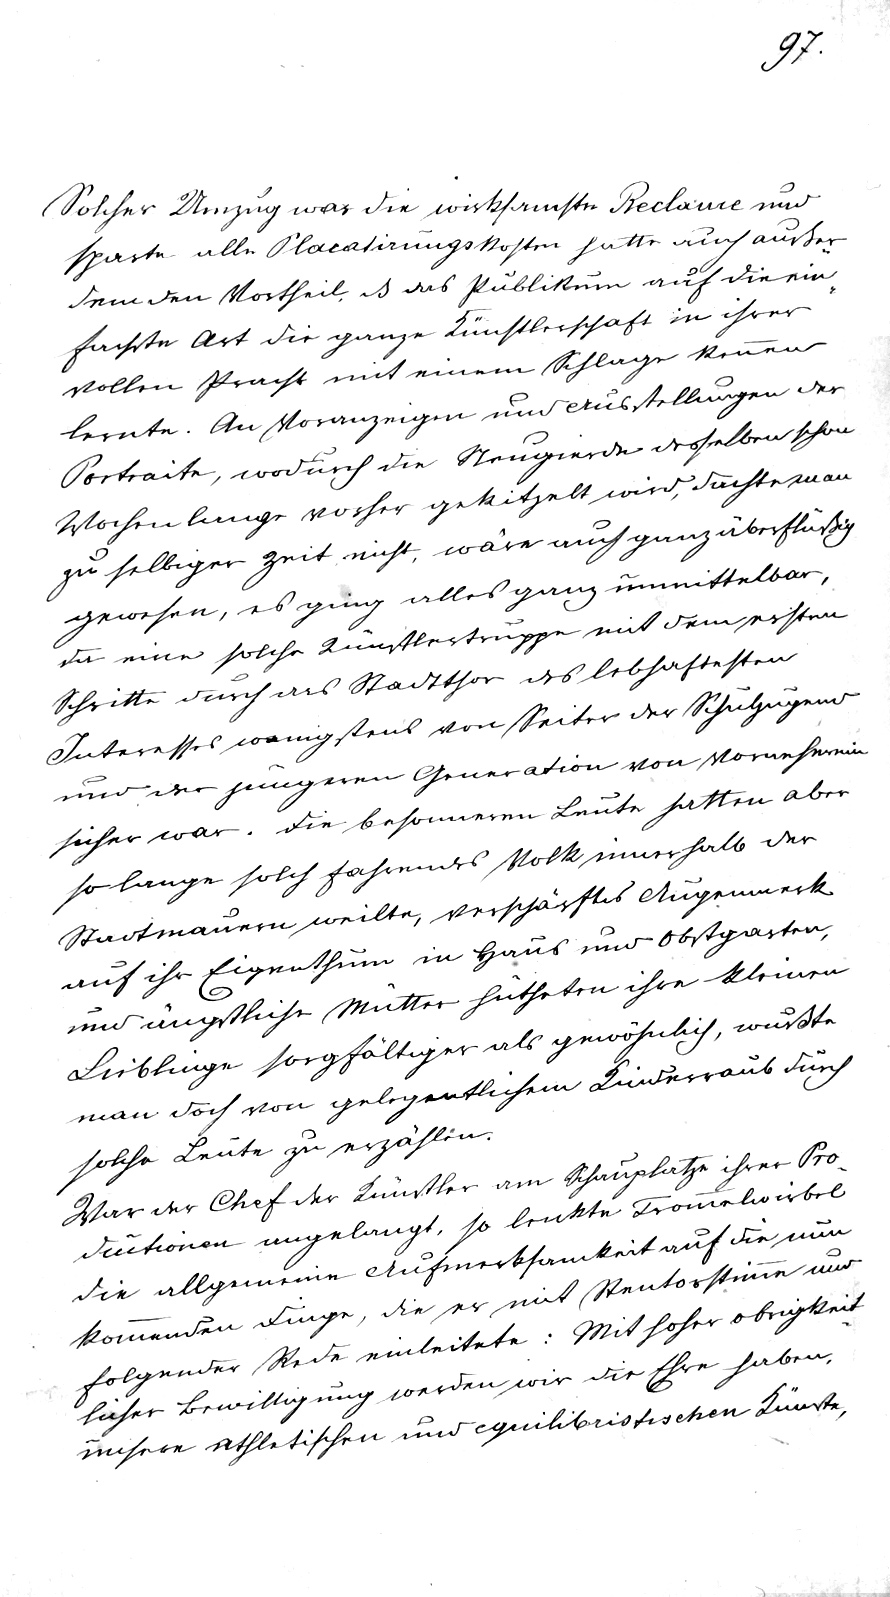 97.
Solcher Umzug war die wirksamste Reclame und
sparte alle Placatirungskosten hatte auch außer
dem den Vortheil, ds das Publikum auf die ein-
fachste Art die ganze Künstlerschaft in ihrer
vollen Pracht mit einem Schlage kennen
lernte. An Voranzeigen und Ausstellungen der
Portraite, wodurch die Neugierde desselben schon
Wochenlange vorher gekitzelt wird, dachte man
zu selbiger Zeit nicht, wäre auch ganz überflüßig
gewesen, es ging alles ganz unmittelbar,
da eine solche Künstlertruppe mit dem ersten
Schritte durch das Stadtthor des lebhaftesten
Interesses wenigstens von Seiter der Schuljugend
und der jüngeren Generation von Vorneherein
sicher war. Die besonneren Leute hatten aber
so lange solch fahrendes Volk innerhalb der
Stadtmauern weilte, verschärftes Augenmerk
auf ihr Eigenthum in Haus und Obstgarten,
und ängstliche Mütter hütheten ihre kleinen
Lieblinge sorgfältiger als gewöhnlich, wußte
man doch von gelegentlichem Kinderraub durch
solche Leute zu erzählen.
War der Chef der Künstler am Schauplatze ihrer Pro-
ductionen angelangt, so lenkte Trom̅elwirbel
die allgemeine Aufmerksamkeit auf die nun
kom̅enden Dinge, die er mit Stentorstim̅e und
folgender Rede einleitete: Mit hoher obrigkeit-
licher Bewilligung werden wir die Ehre haben,
unsere athletischen und equilibristischen Künste,